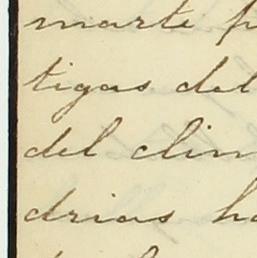 marte p
tigas del
del clim
drias ha